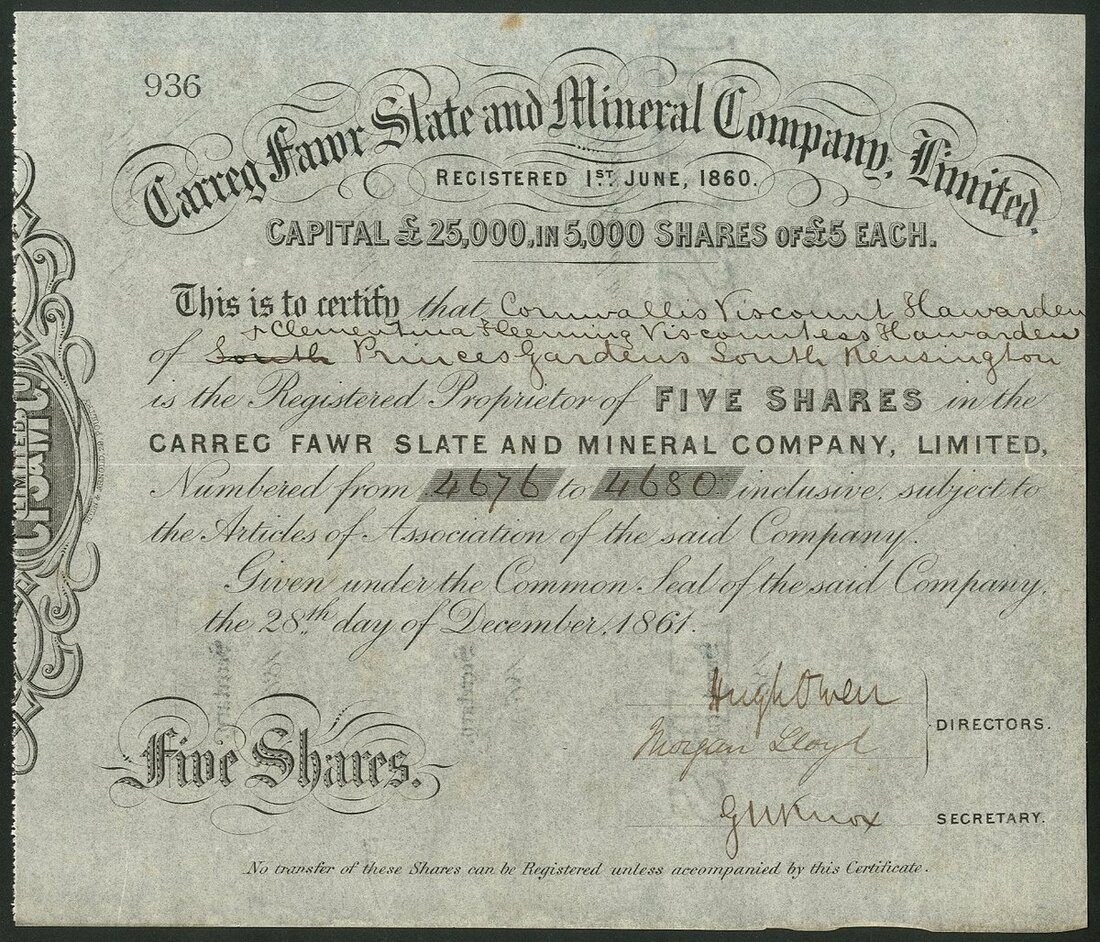 936
Carreg Fawr Slate and Mineral Company, Limited.
REGISTERED 1ST JUNE, 1860.
CAPITAL £25,000, IN 5,000 SHARES OF £5 EACH.
This is to certify that Cornwallis Viscount Hawarden
& Clementina Fleeming Viscountess Hawarden
of South Princes Gardens South Kensington
is the Registered Proprietor of FIVE SHARES in the
CARREG FAWR SLATE AND MINERAL COMPANY, LIMITED,
Numbered from 4676 to 4680 inclusive, subject to
the Articles of Association of the said Company.
Given under the Common Seal of the said Company,
the 28th day of December, 1861.
Hugh Owen
Morgan Lloyd
DIRECTORS.
Five Shares.
G H Knox
SECRETARY.
No transfer of these Shares can be Registered unless accompanied by this Certificate.
LIMITED